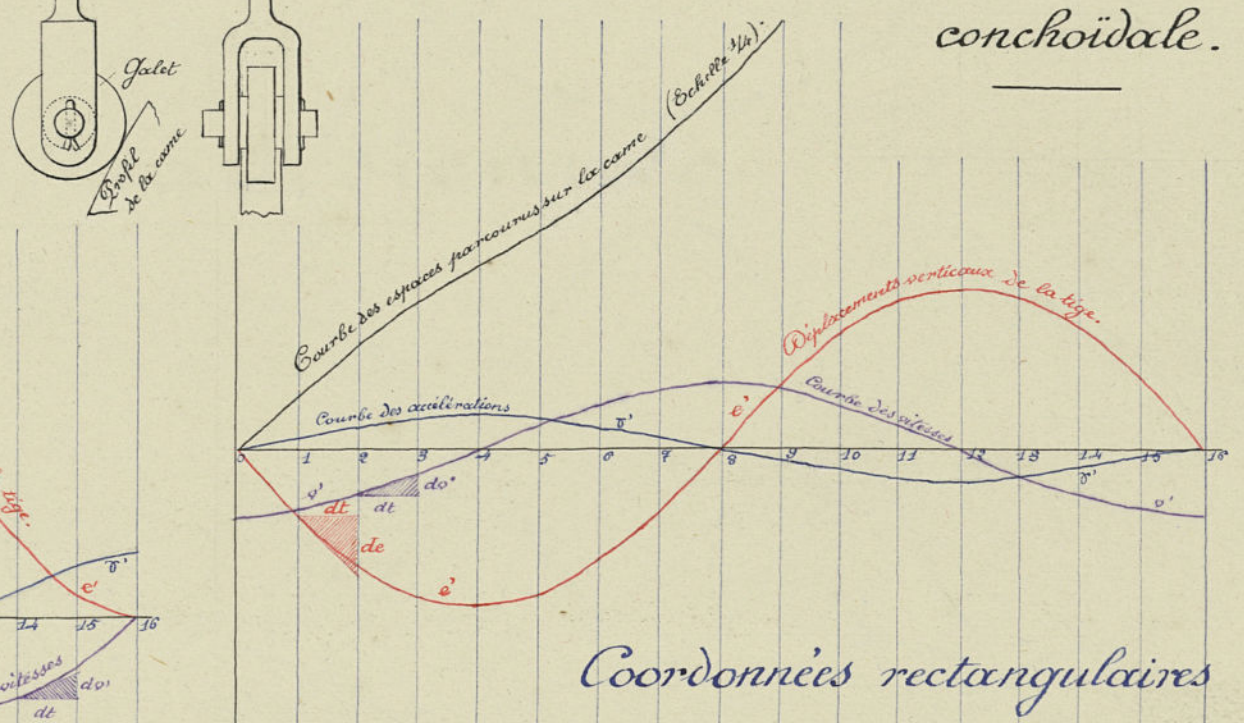 conchoïdale.
Galet
Profil
de la came
Courbe des espaces parcourus sur la came (Echelle 3/4).
Déplacements verticaux de la tige.
Courbe des accélérations
Courbe des vitesses
γ'
e'
0 1 2 3 4 5 6 7 8 9 10 11 12 13 14 15 16
v'
dv'
dt
γ'
v'
dt
de
e'
tige.
γ'
e'
14 15 16
vitesses
dv'
dt
Coordonnées rectangulaires